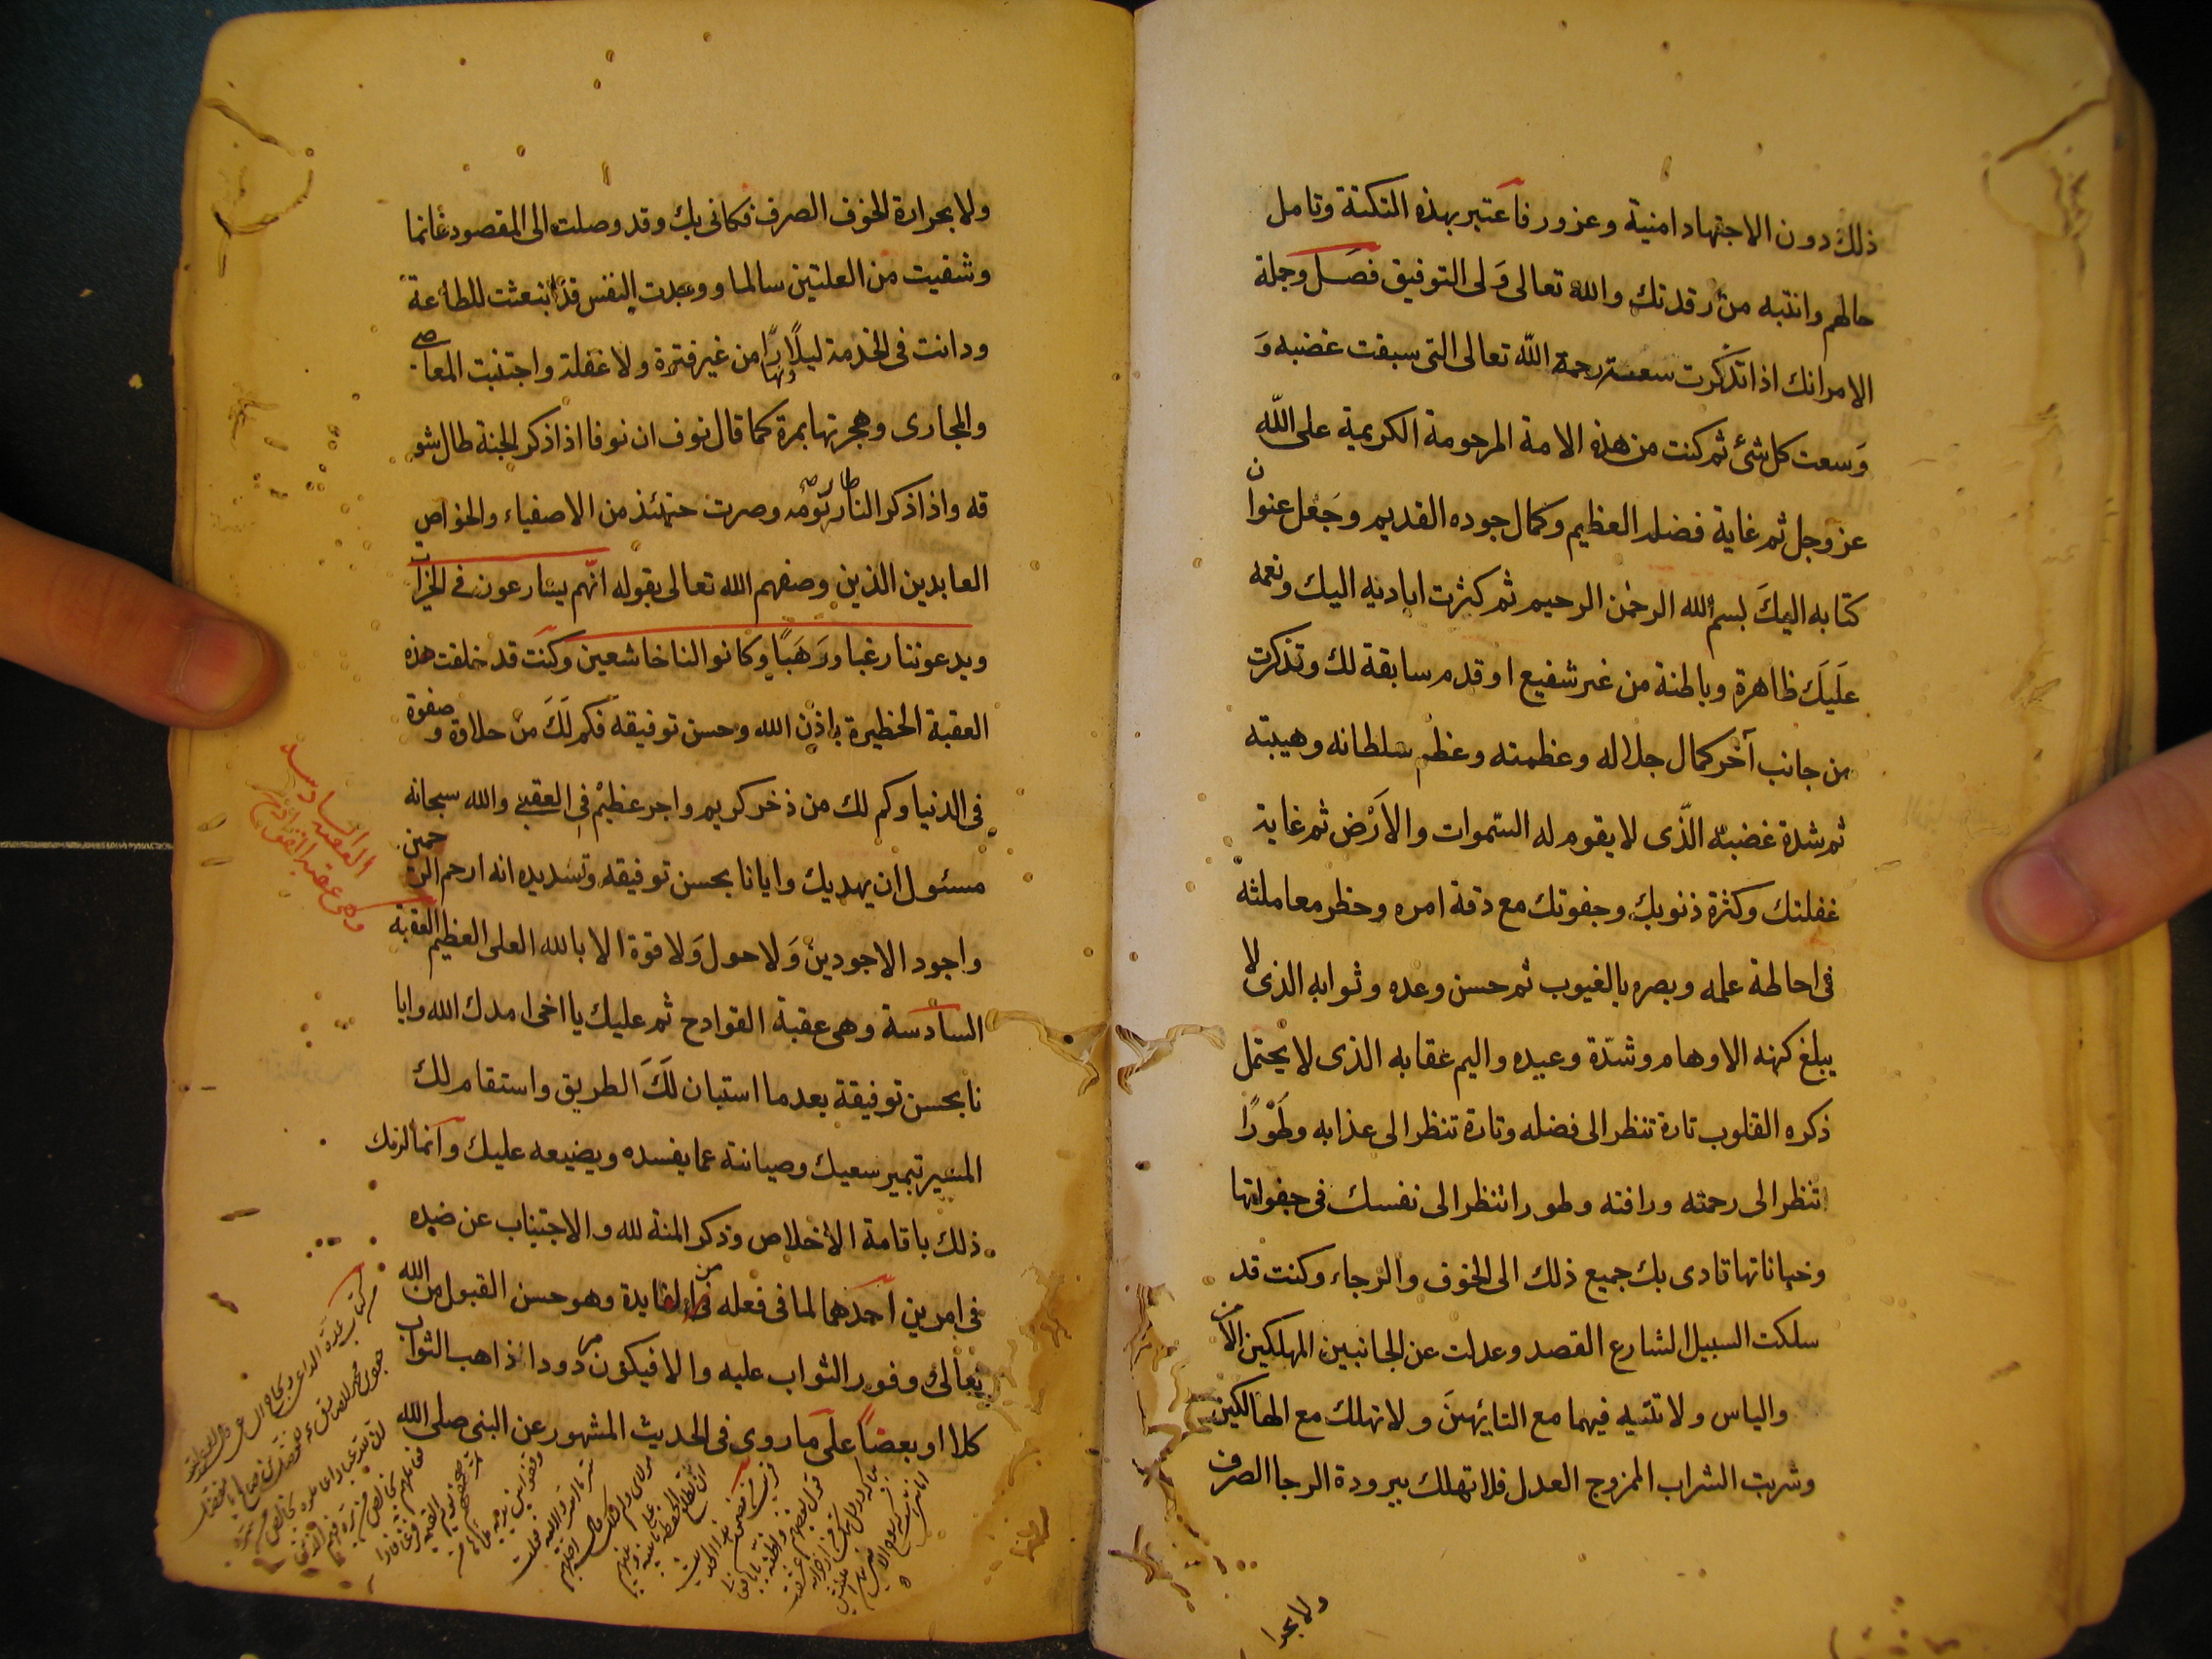 ذلك دون الاجتهاد امنية وغرور فاعتبر بهذه النكتة وتامل
حالهم وانتبه من رقدتك والله تعالى ولى التوفيق فصل وجملة
الامر انك اذا تذكرت سعة رحمة الله تعالى التى سبقت غضبه وَ
وَسعت كل شئ ثم كنت من هذه الامة المرحومة الكريمة على الله
عز وجل ثم غاية فضله العظيم وكمال جوده القديم وجَعل عنوان
كتابه اليكَ بسم الله الرحمن الرحيم ثم كثرت اياديه اليك ونعمه
عَليَكَ ظاهرة وباطنة من غير شفيع او قدم سابقة لك وتذكرت
من جانب آخر كمال جلاله وعظمته وعظم سلطانه وهيبته
ثم شدة غضبه الّذى لا يقوم له السّموات والاَرْض ثم غاية
غفلتك وكثرة ذنوبك وجفوتك مع دقة امره وخطر معاملته
فى احاطة علمه وبصره بالغيوب ثم حسن وعده وثوابه الذى لا
يبلغ كنهه الاوهام وشدّة وعيده واليم عقابه الذى لا يحتمل
ذكره القلوب تارة تنظر الى فضله وتارة تنظر الى عذابه وطَوْرًا
تنظر الى رحمته ورافته وطورا تنظر الى نفسك فى جفواتها
وخياناتها تادى بك جميع ذلك الى الخوف والرجاء وكنت قد
سلكت السبيل الشارع القصد وعدلت عن الجانبين المهلكين الأمن
والياس ولا تتيه فيهما مع التايهينَ ولا تهلك مع الهالكين
وشربت الشراب الممزوج العدل فلا تهلك ببرودة الرجا الصرف
ولا بحرا
ولا بحرارة الخوف الصرف فكانى بك وقد وصلت الى المقصود غانما
وشفيت من العلتين سالما ووجدت النفس قد انبعثت للطاعة
ودانت فى الخدمة ليلًا ونهارًا من غير فترة ولا غفلة واجتنبت المعاصى
والمجارى وهجرتها بمرة كما قال نوف ان نوفا اذا ذكر الجنة طال شو
قه واذا ذكر النار طار نومه وصرت حينئذ من الاصفياء والخواص
العابدين الذين وصفهم الله تعالى بقوله انّهم يسارعون فى الخيرات
ويدعوننا رغبا ورَهَبًا وكانوا لنا خاشعين وكنت قد خلفت هذه
العقبة الخطيرة باذن الله وحسن توفيقه فكم لَكَ من حلاوة وصفوة
فى الدنيا وكم لك من ذخر كريم واجر عظيم فى العقبى والله سبحانه
مسئول ان يهديك وايانا بحسن توفيقه وتسديده انه ارحم الرحمين
واجود الاجودين وَلا حول وَلا قوة الا بالله العلى العظيم العقبة
السادسة وهى عقبة القوادح ثم عليك يا اخى امدك الله وايا
نا بحسن توفيقة بعد ما استبان لَكَ الطريق واستقام لك
المسير تمير سعيك وصيانة عما يفسده ويضيعه عليك وانما لزمك
ذلك باقامة الاخلاص وذكر المنة لله والاجتناب عن ضده
فى امرين احدهما لما فى فعله من الفايدة وهو حسن القبول من الله
تعالى وفور الثواب عليه والا فيكون مردودا ذاهب الثواب
كلا او بعضاً على ما روى فى الحديث المشهور عن النبى صلى الله
العقبة السادسة
وهى عقبة القوادح